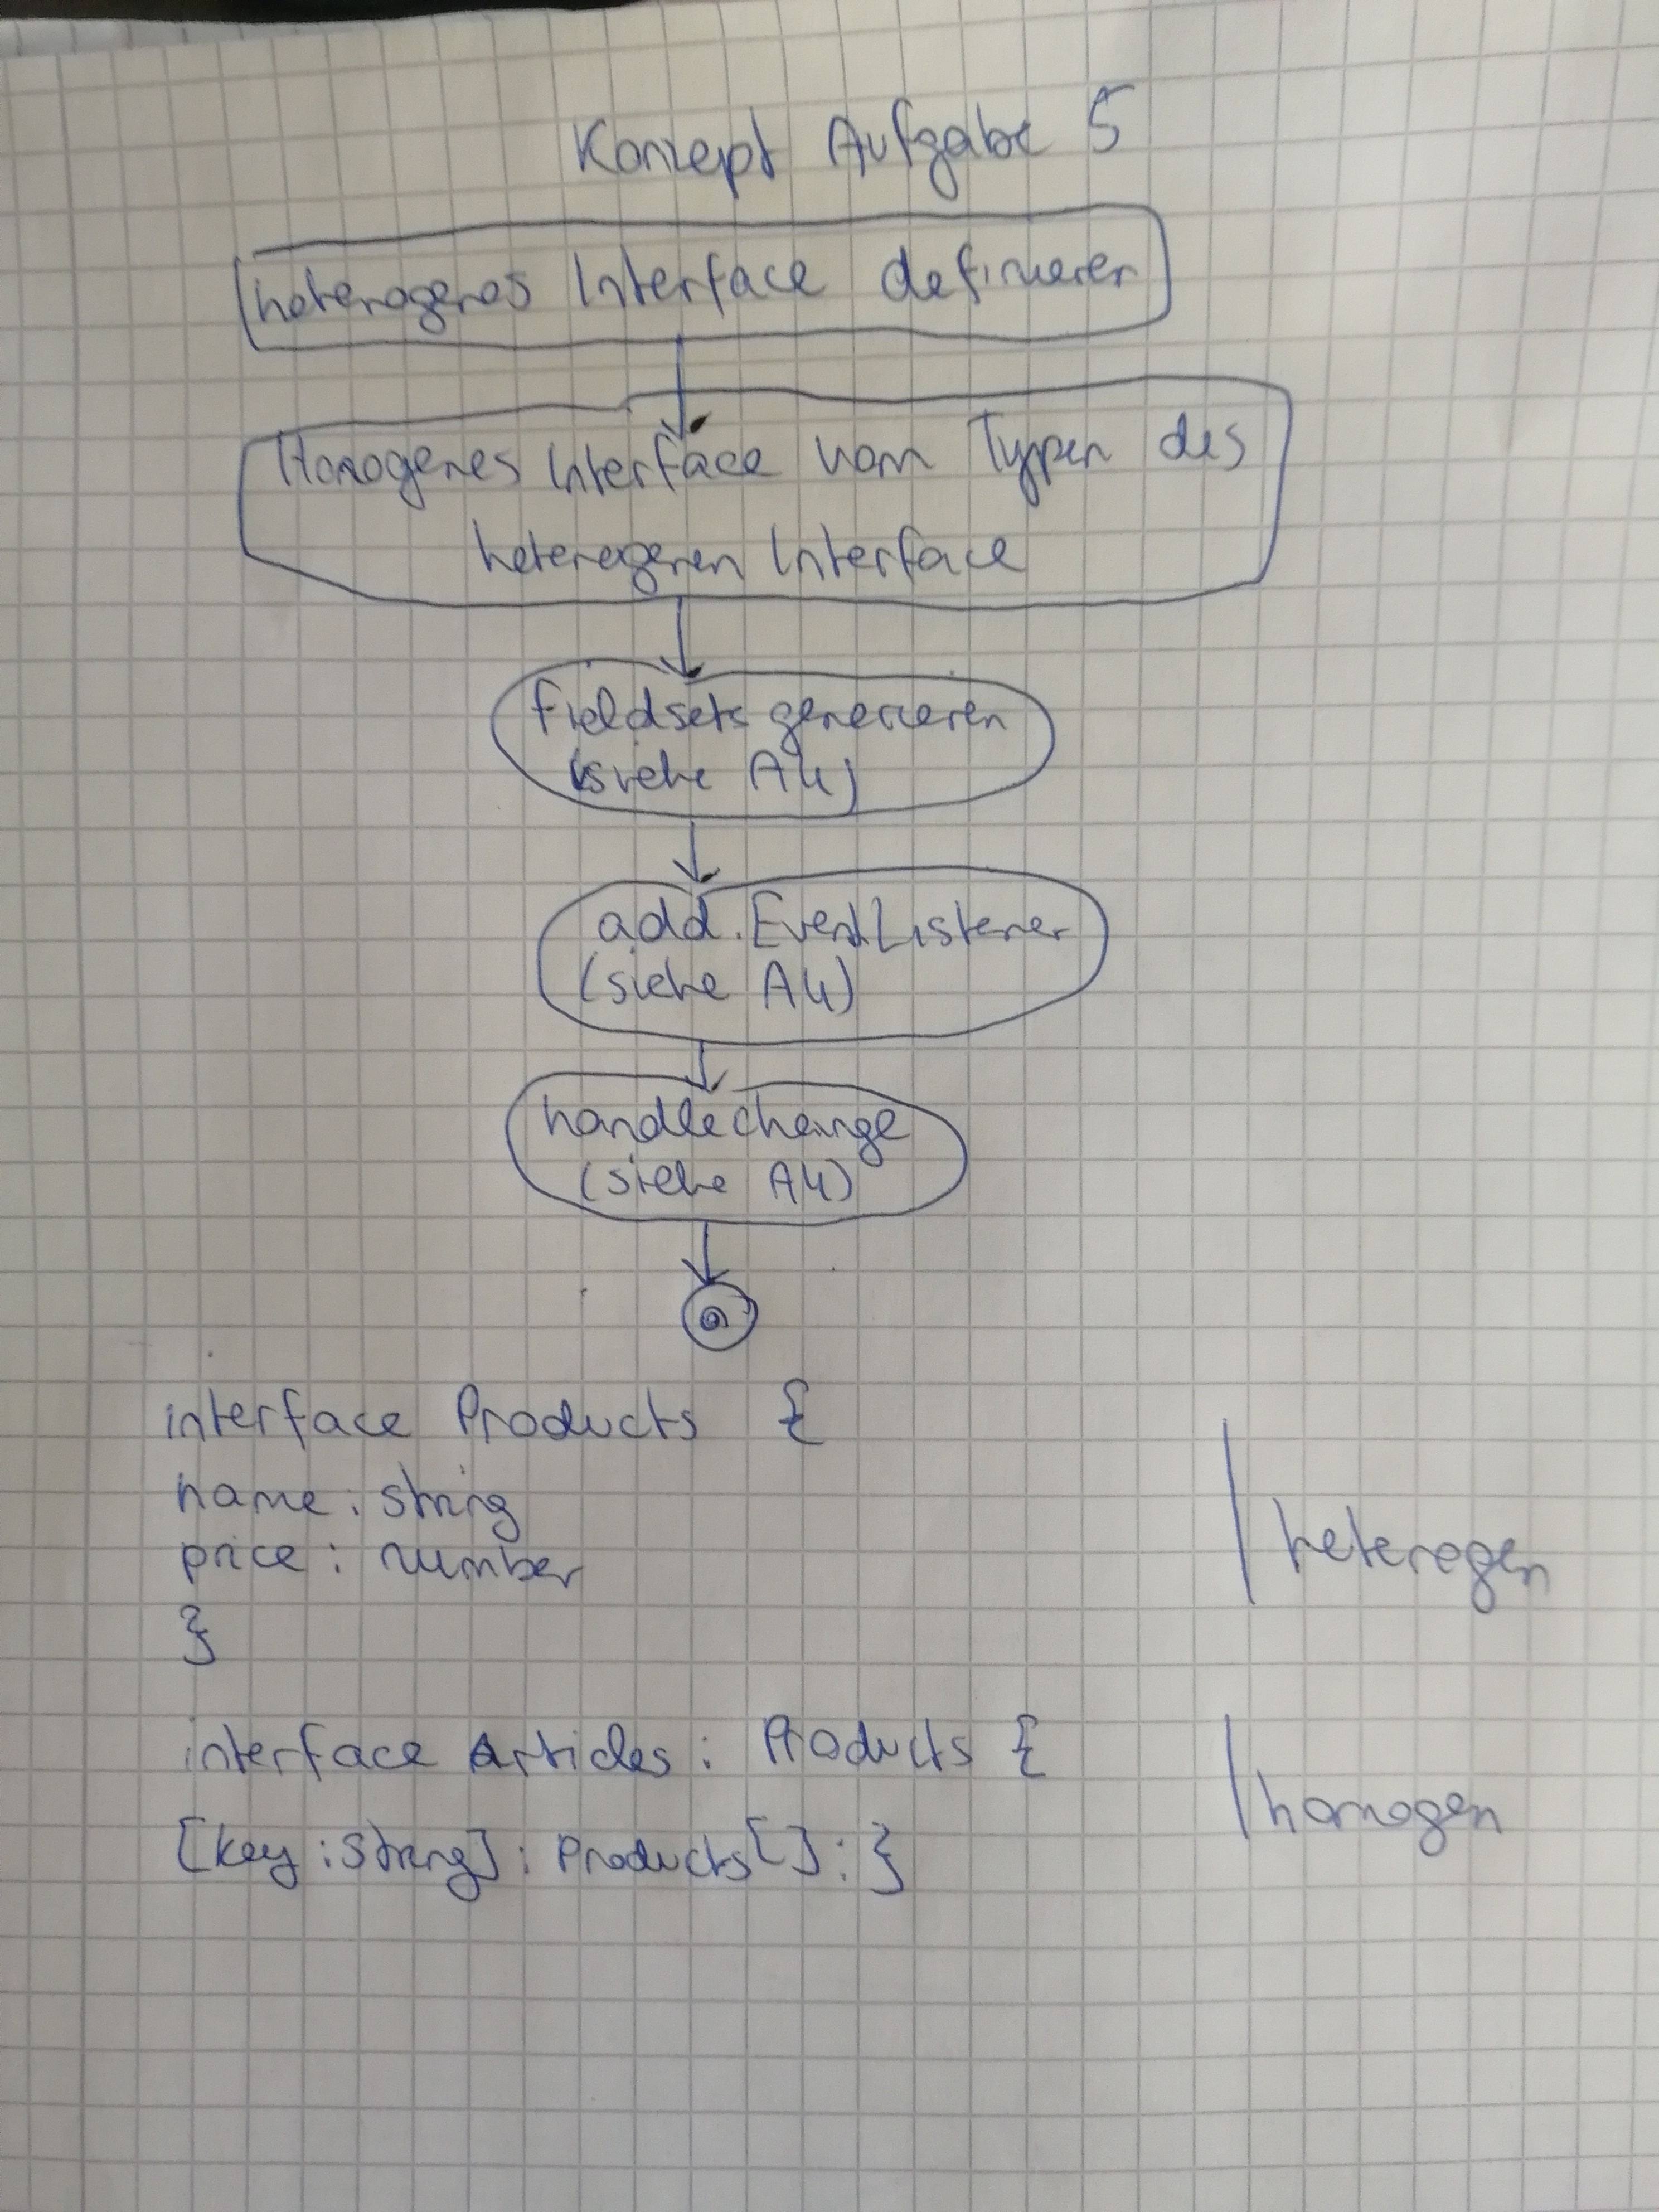 Konzept Aufgabe 5
heterogenes Interface definieren
Homogenes Interface vom Typen des
heterogenen Interface
fieldsets generieren
(siehe A4)
add.EventListener
(siehe A4)
handlechange
(siehe A4)
interface Products {
name: string
price: number
}
heterogen
interface Articles: Products {
[key: string]: Products[]: }
homogen